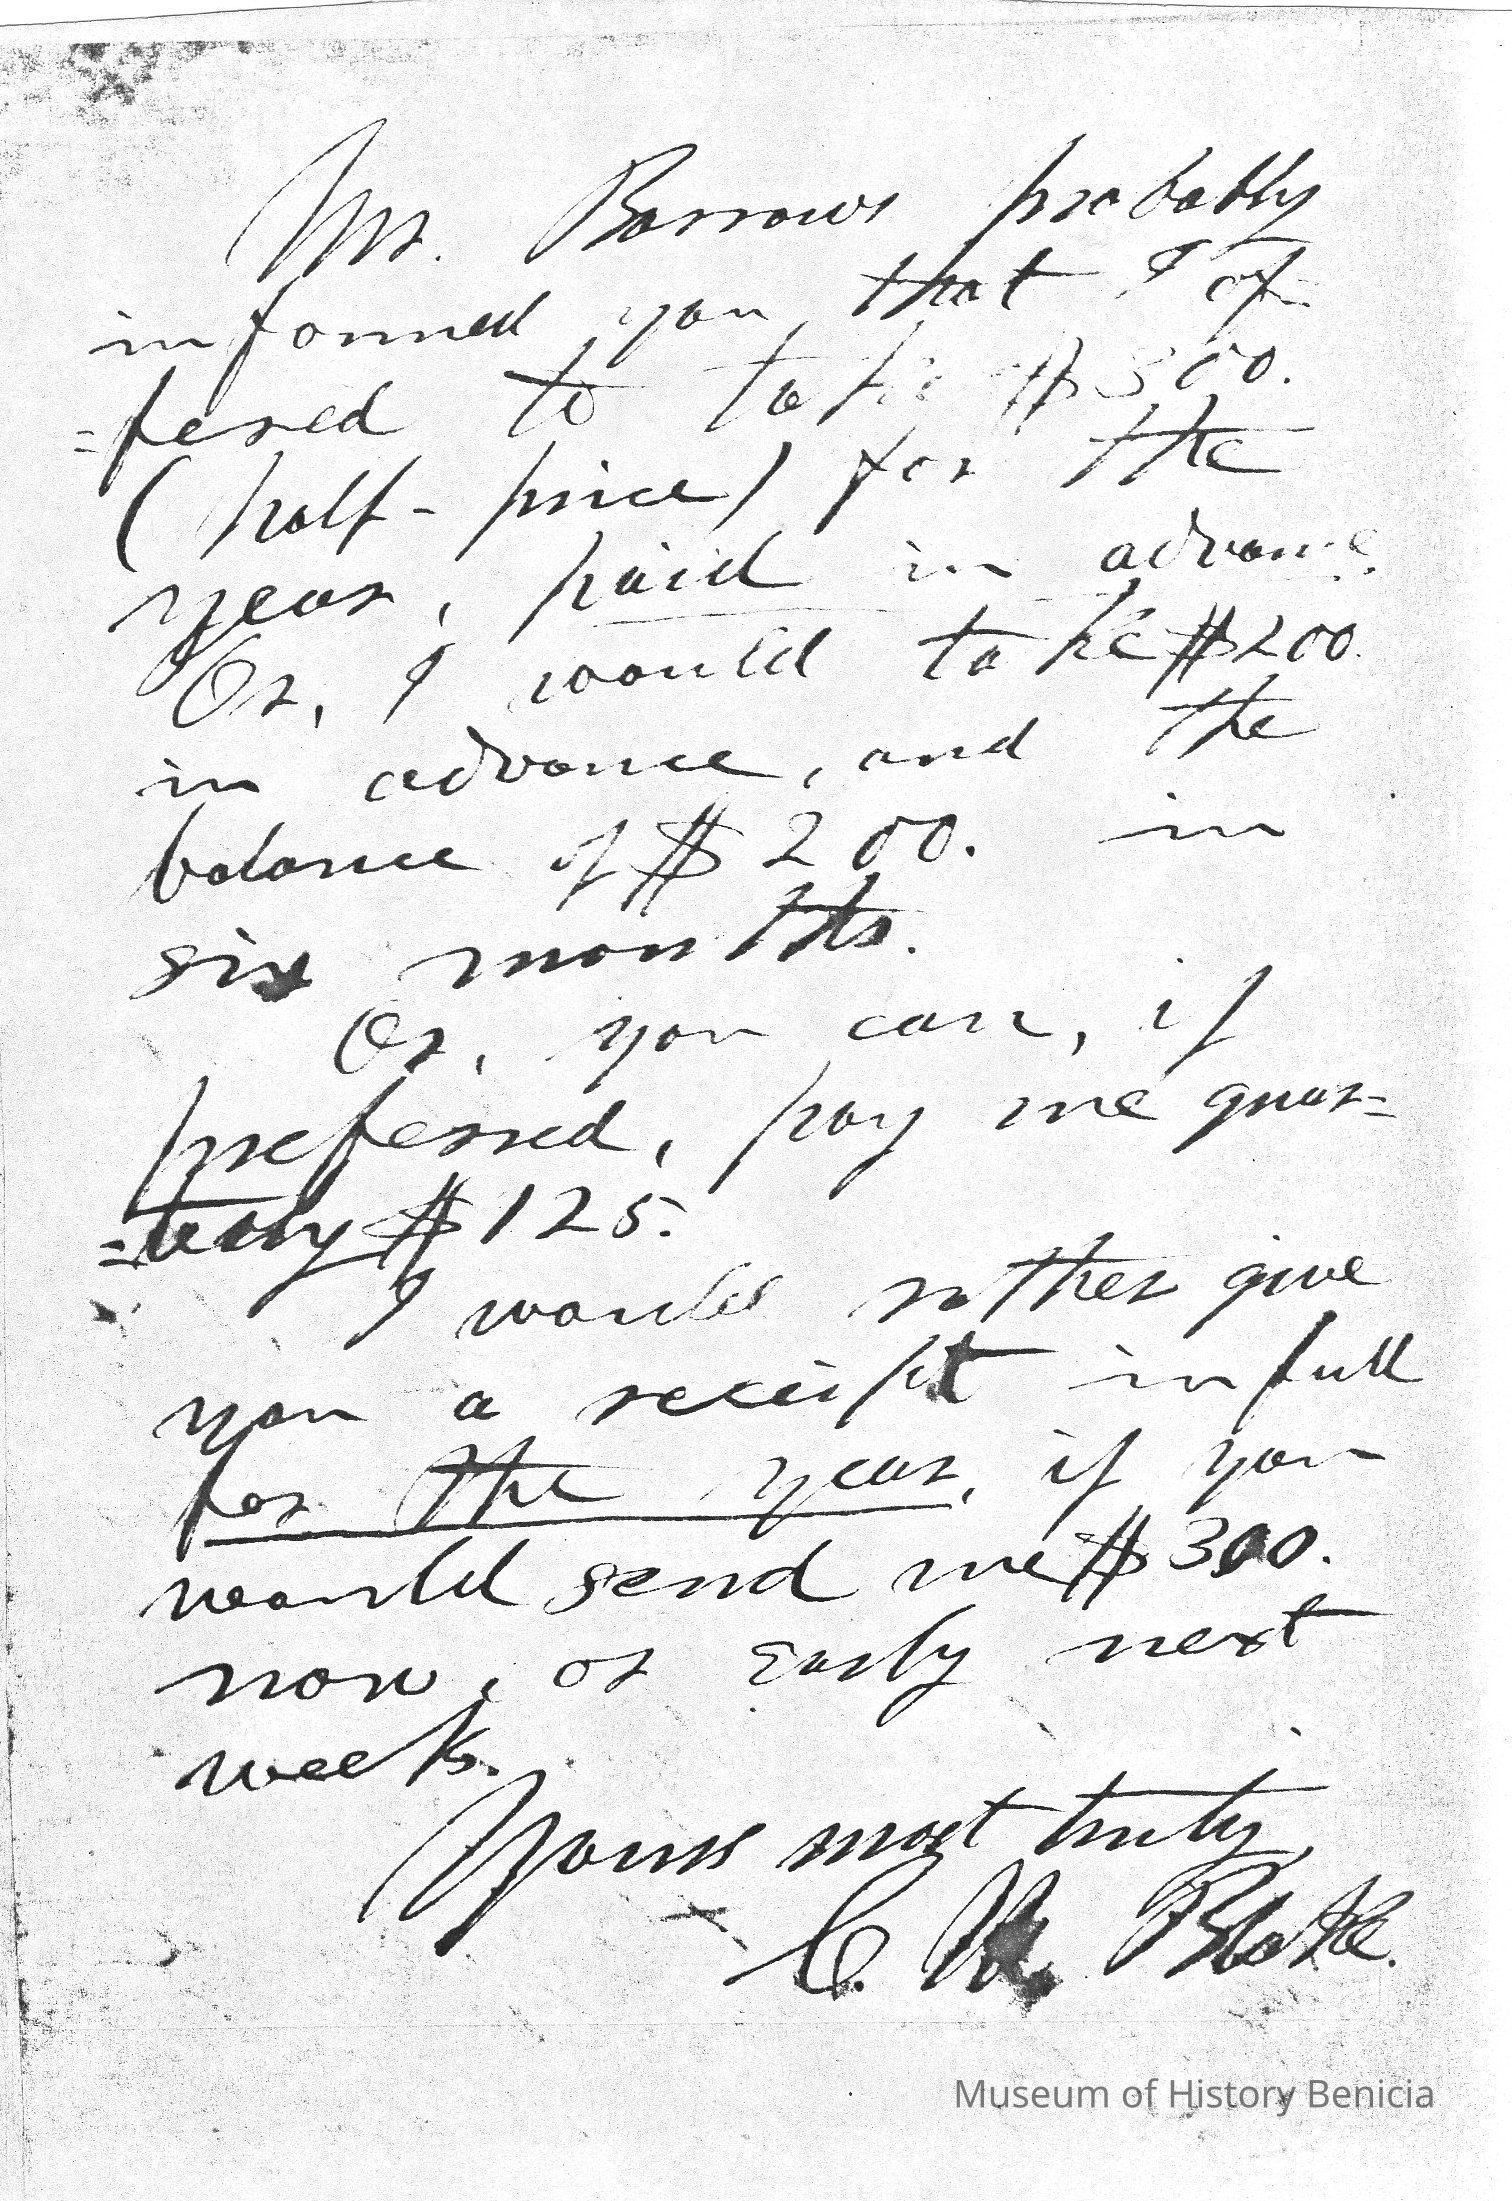 Mr. Barrows probably
informed you that I of=
=fered to take $300.
( half-price) for the
year, paid in advance.
Or, I would take $200.
in advance, and the
balance of $200. in
six months.
Or, you can, if
preferred, pay me quar=
=terly $125.
I would rather give
you a receipt in full
for the year, if you
would send me $300.
now, or early next
week.
Yours most truly,
C. M. Blake.
Museum of History Benicia